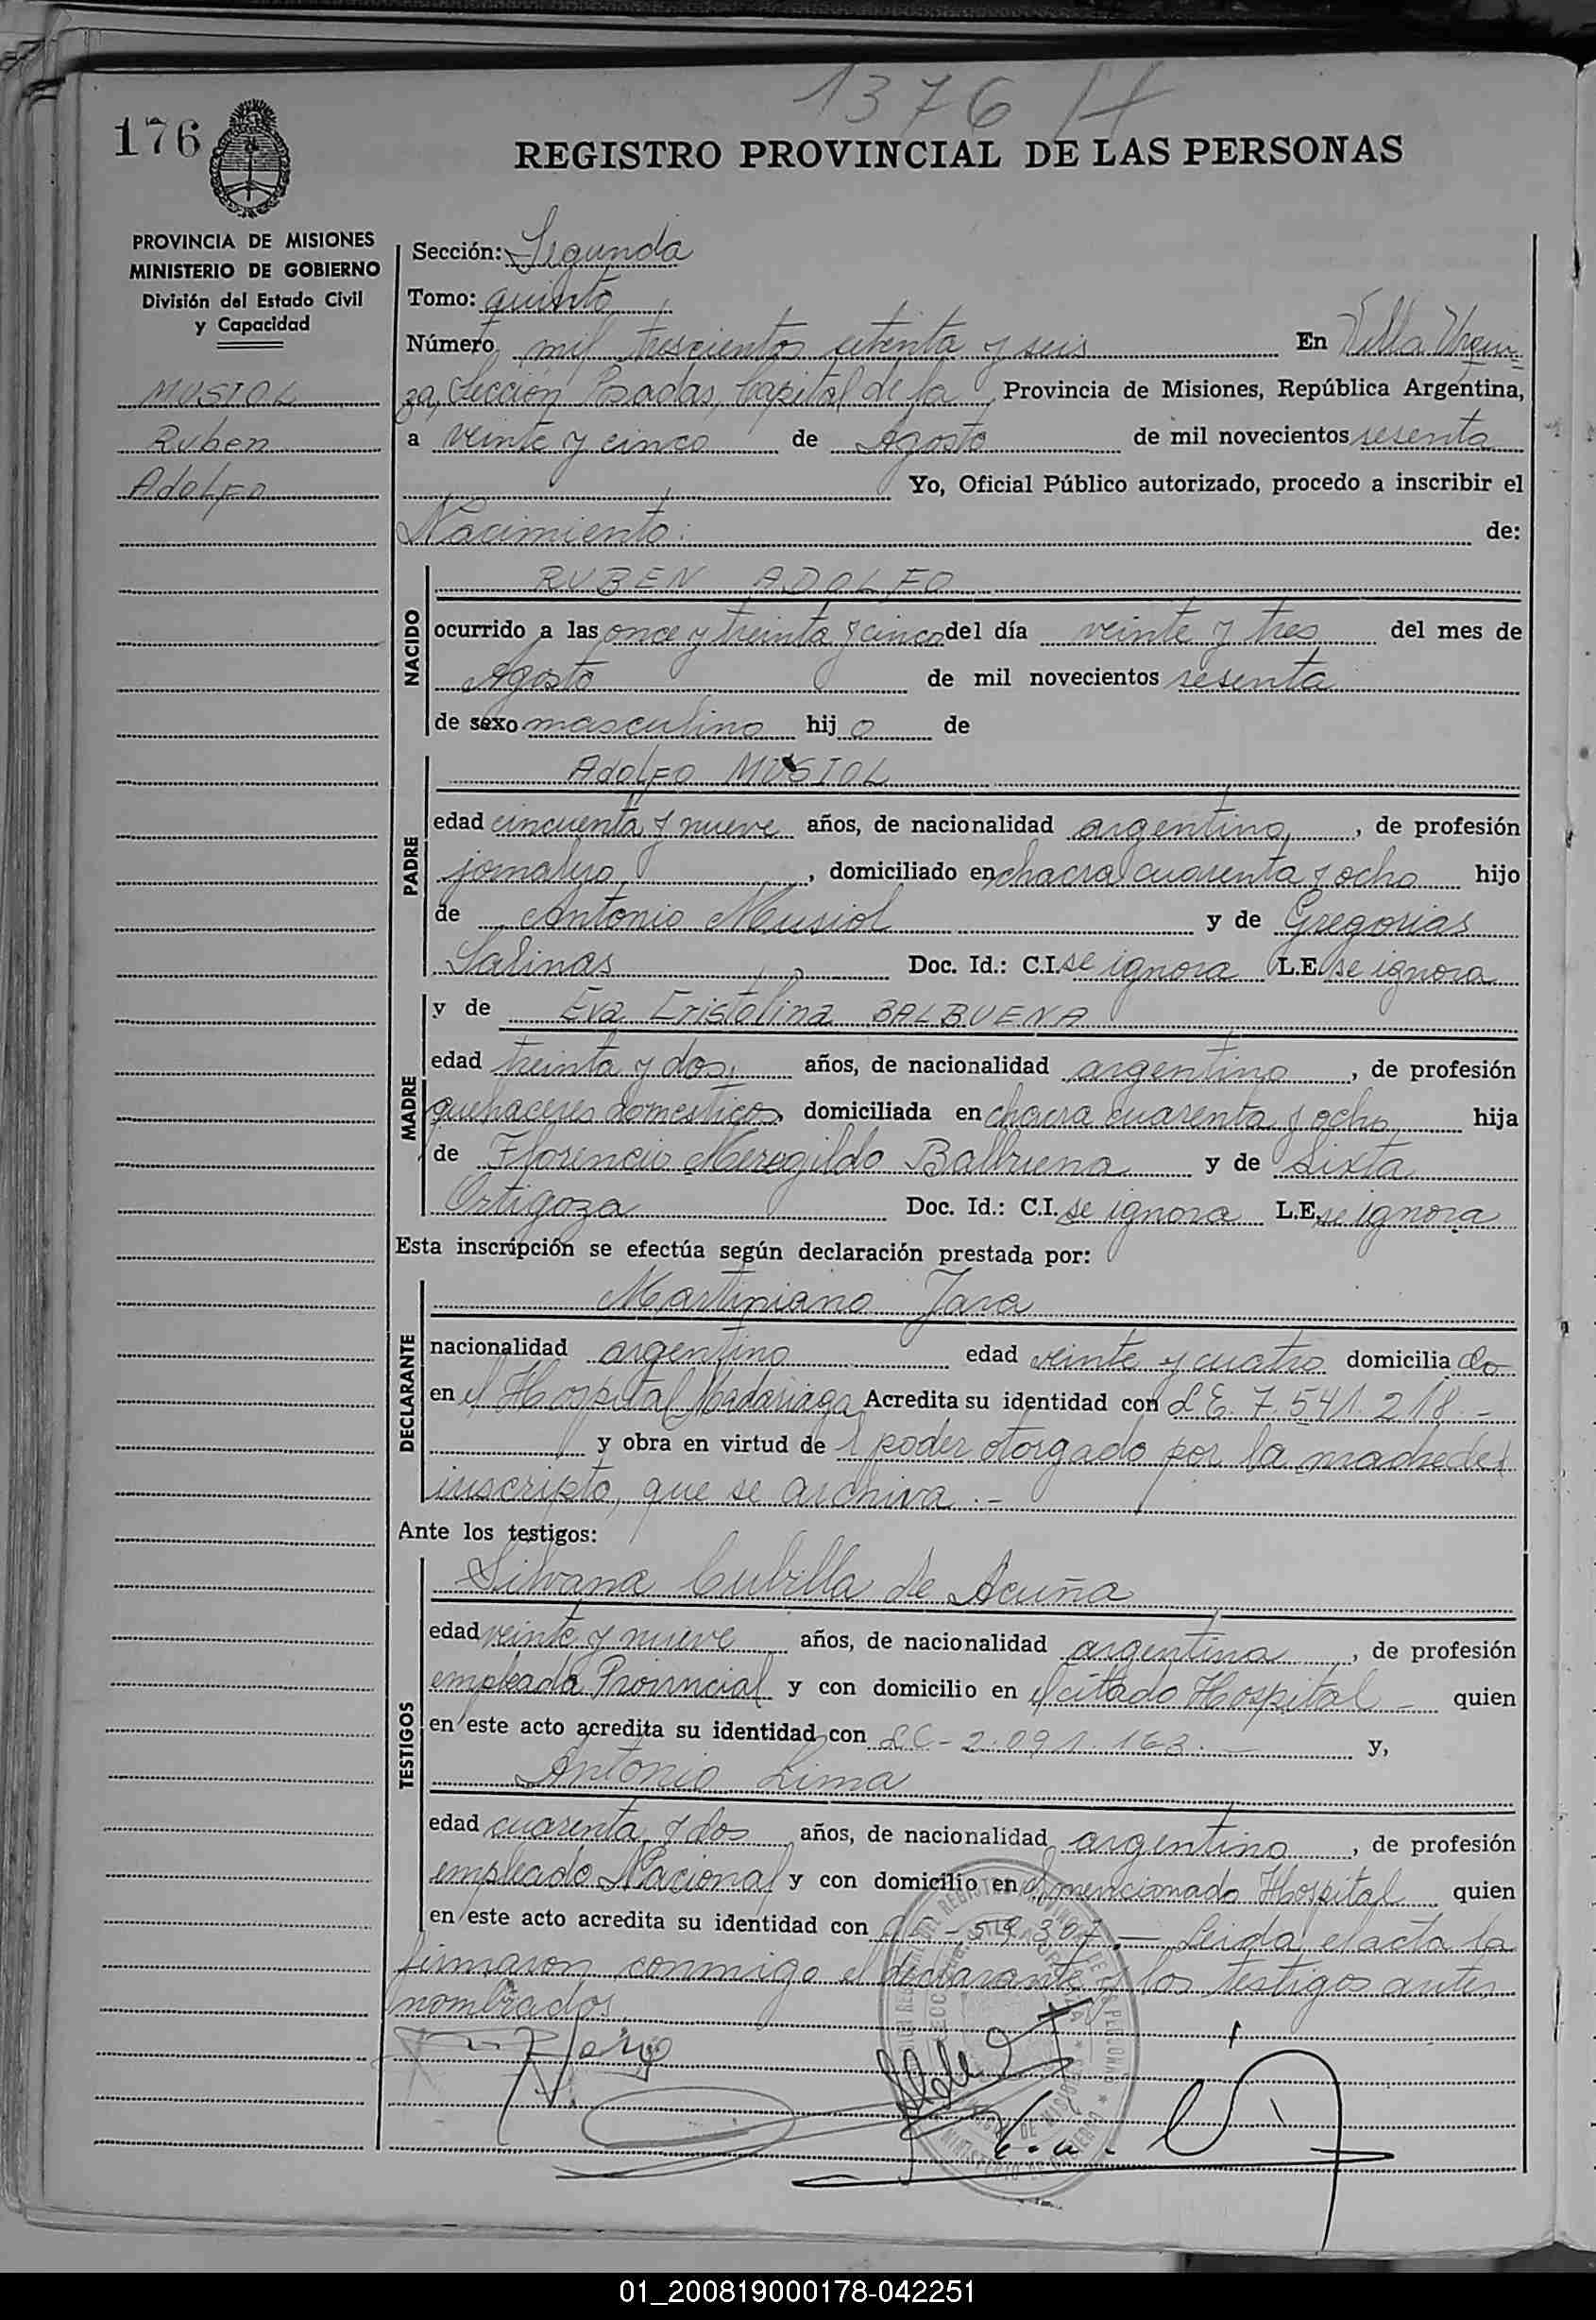 1376 H
176
REGISTRO PROVINCIAL DE LAS PERSONAS
PROVINCIA DE MISIONES
MINISTERIO DE GOBIERNO
División del Estado Civil
y Capacidad
MUSIOL
Ruben
Adolfo
Sección: Segunda
Tomo: quinto
Número mil trescientos setenta y seis En Villa Urqui
za, Sección Posadas, Capital de la Provincia de Misiones, República Argentina,
a veinte y cinco de Agosto de mil novecientos sesenta
Yo, Oficial Público autorizado, procedo a inscribir el
Nacimiento: de:
NACIDO
RUBEN ADOLFO
ocurrido a las once y treinta y cinco del día veinte y tres del mes de
Agosto de mil novecientos sesenta
de sexo masculino hijo de
PADRE
Adolfo MUSIOL
edad cincuenta y nueve años, de nacionalidad argentina, de profesión
jornalero, domiciliado en chacra cuarenta y ocho hijo
de Antonio Musiol y de Gregorias
Salinas Doc. Id.: C.I. se ignora L.E. se ignora
MADRE
y de Eva Cristolina BALBUENA
edad treinta y dos, años, de nacionalidad argentina, de profesión
quehaceres domesticos, domiciliada en chacra cuarenta y ocho hija
de Florencio Meregildo Balbuena y de Sixta
Ortigoza Doc. Id.: C.I. se ignora L.E. se ignora
Esta inscripción se efectúa según declaración prestada por:
DECLARANTE
Martiniano Jara
nacionalidad argentino edad veinte y cuatro domiciliado
en el Hospital Madariaga Acredita su identidad con L E. 7.541.218.-
y obra en virtud del poder otorgado por la madre del
inscripto, que se archiva.-
Ante los testigos:
TESTIGOS
Silvana Cubilla de Acuña
edad veinte y nueve años, de nacionalidad argentina, de profesión
empleada Provincial y con domicilio en el citado Hospital - quien
en este acto acredita su identidad con LC-2.091.163.- y,
Antonio Lima
edad cuarenta y dos años, de nacionalidad argentino, de profesión
empleado Nacional y con domicilio en el mencionado Hospital quien
en este acto acredita su identidad con 59.307.- Leida el acta la
firmaron conmigo el declarante y los testigos antes
nombrados.
01_200819000178-042251